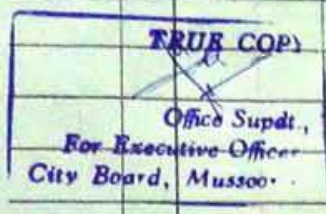 TRUE COPY
Office Supdt.,
For Executive Officer
City Board, Mussoo